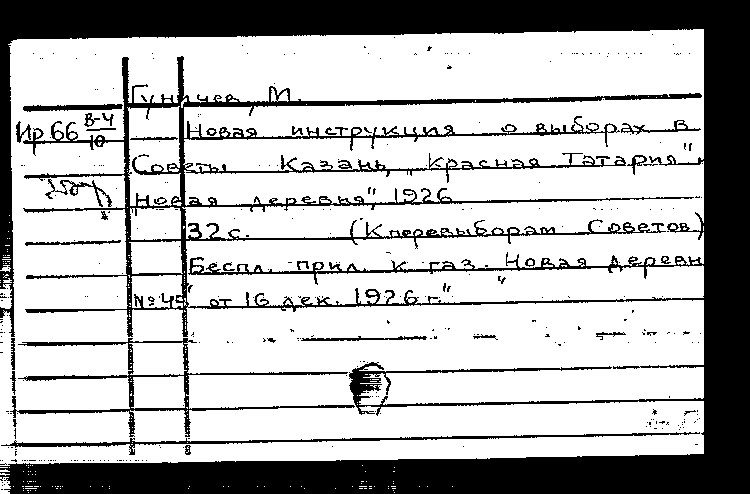 Гуничев, М.
Ир 66 В-4/10
Новая инструкция о выборах в
Советы Казань, „Красная Татария",
„Новая деревня", 1926
32 с. (К перевыборам Советов)
Беспл. прил. к газ. „Новая деревн
№ 45" от 16 дек. 1926 г."